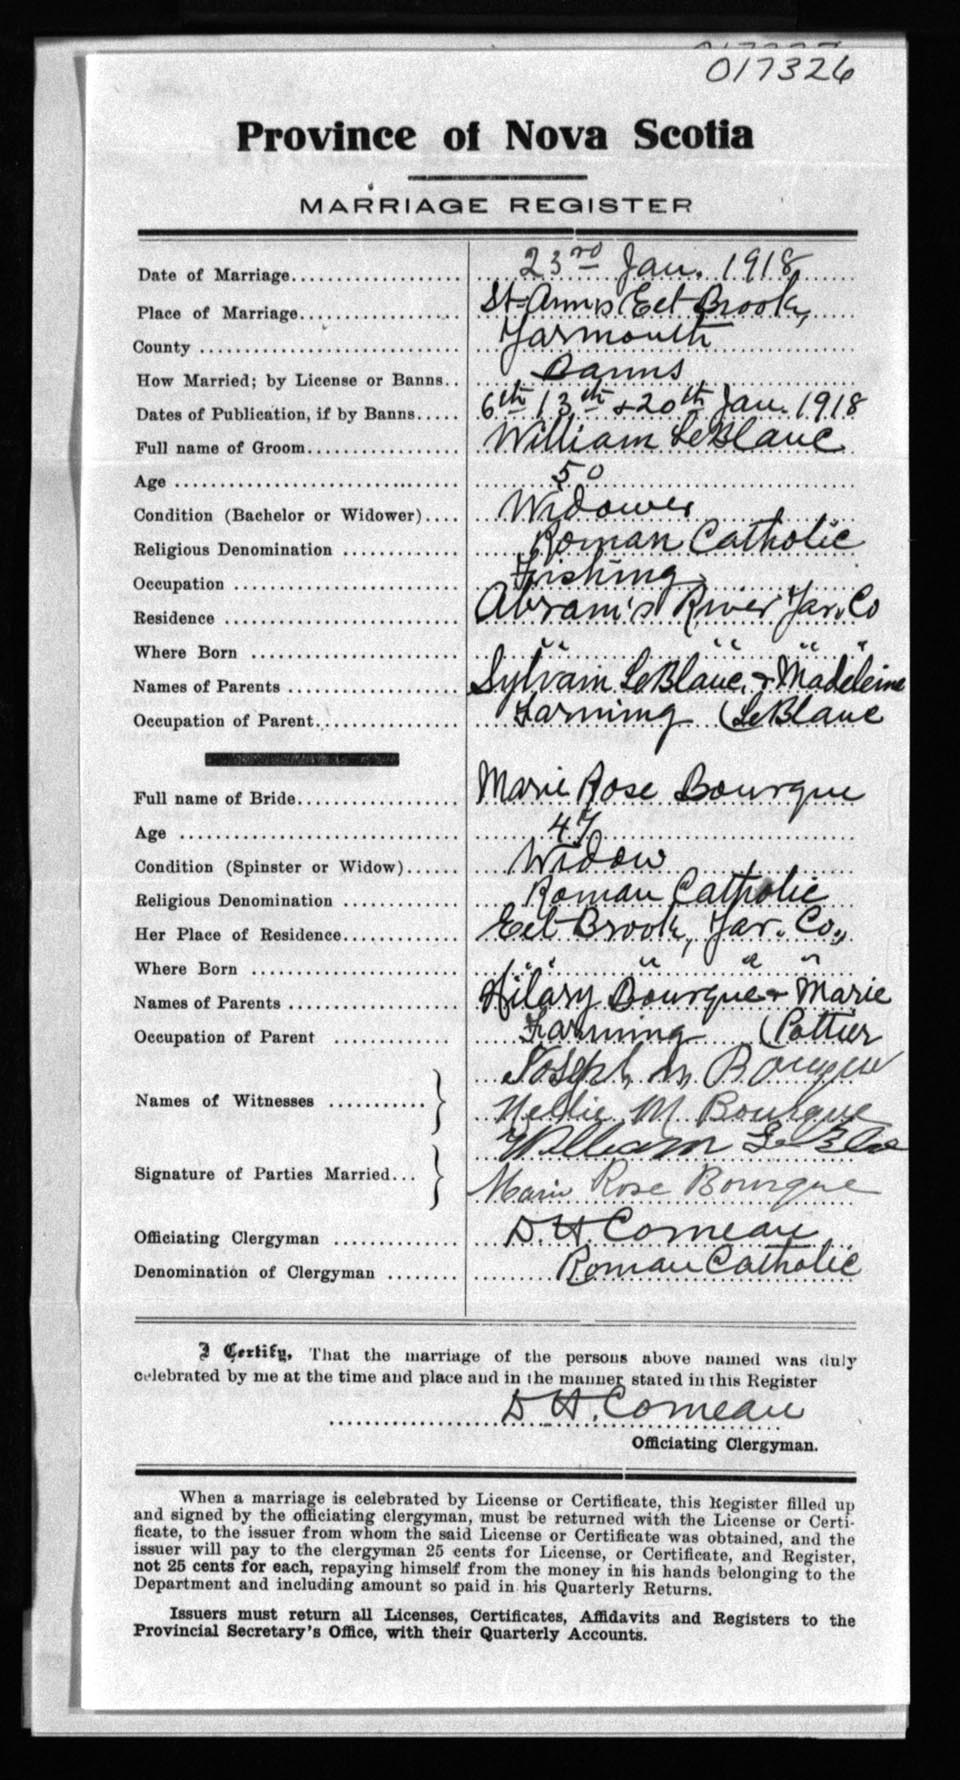 017326
Province of Nova Scotia
MARRIAGE REGISTER
Date of Marriage.................... 23rd Jan. 1918
Place of Marriage................... St Ann's Eel Brook,
County ............................. Yarmouth
How Married; by License or Banns.. Banns
Dates of Publication, if by Banns..... 6th 13th & 20th Jan. 1918
Full name of Groom.................. William LeBlanc
Age ................................ 50
Condition (Bachelor or Widower).... Widower
Religious Denomination ............. Roman Catholic
Occupation ......................... Fishing
Residence .......................... Abram's River Yar. Co
Where Born ......................... " " " "
Names of Parents ................... Sylvain LeBlanc & Madeleine
Occupation of Parent................ Farming (LeBlanc
Full name of Bride.................. Marie Rose Bourque
Age ................................ 47
Condition (Spinster or Widow)...... Widow
Religious Denomination ............. Roman Catholic
Her Place of Residence.............. Eel Brook, Yar. Co.,
Where Born ......................... " " " "
Names of Parents ................... Hilary Bourque & Marie
Occupation of Parent ............. Farming (Pottier
Joseph M Bourque
Names of Witnesses ........... } Nellie M Bourque
William LeBla
Signature of Parties Married... } Marie Rose Bourque
Officiating Clergyman .............. D. H. Comeau
Denomination of Clergyman ........ Roman Catholic
I Certify, That the marriage of the persons above named was duly
celebrated by me at the time and place and in the manner stated in this Register
D. H. Comeau
Officiating Clergyman.
When a marriage is celebrated by License or Certificate, this Register filled up
and signed by the officiating clergyman, must be returned with the License or Certi-
ficate, to the issuer from whom the said License or Certificate was obtained, and the
issuer will pay to the clergyman 25 cents for License, or Certificate, and Register,
not 25 cents for each, repaying himself from the money in his hands belonging to the
Department and including amount so paid in his Quarterly Returns.
Issuers must return all Licenses, Certificates, Affidavits and Registers to the
Provincial Secretary's Office, with their Quarterly Accounts.